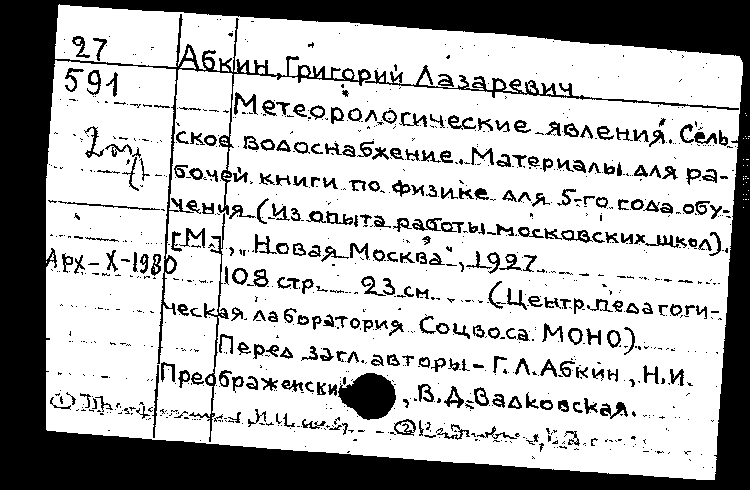 27
591
2оп
Арх-X-1980
Абкин, Григорий Лазаревич.
Метеорологические явления. Сель-
ское водоснабжение. Материалы для ра-
бочей книги по физике для 5-го года обу-
чения (Из опыта работы московских школ).
[М.], „Новая Москва“, 1927.
108 стр. 23 см. (Центр. педагоги-
ческая лаборатория Соцвоса МОНО).
Перед загл. авторы - Г.Л. Абкин, Н.И.
Преображенский, В.Д. Вадковская.